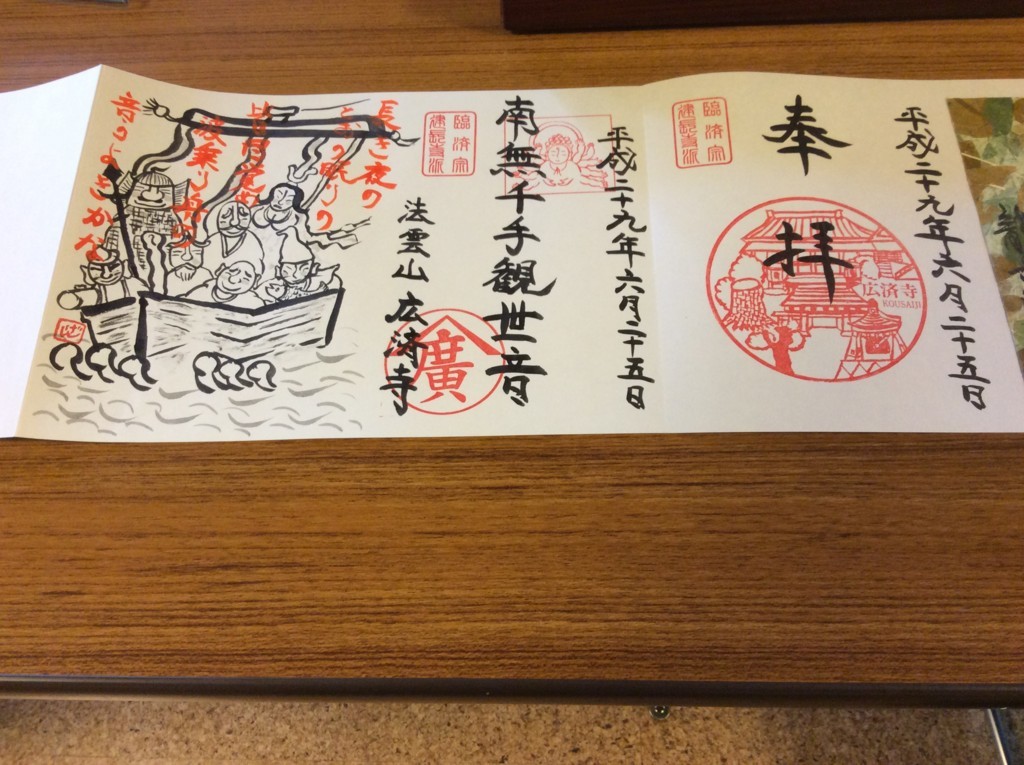 平成二十九年六月二十五日
奉拝
臨済宗
建長寺派
広済寺
KOUSAIJI
平成二十九年六月二十五日
南無千手観世音
臨済宗
建長寺派
法雲山 広済寺
廣
長き夜の
とおの眠りの
皆目覚め
波乗り舟の
音のよきかな